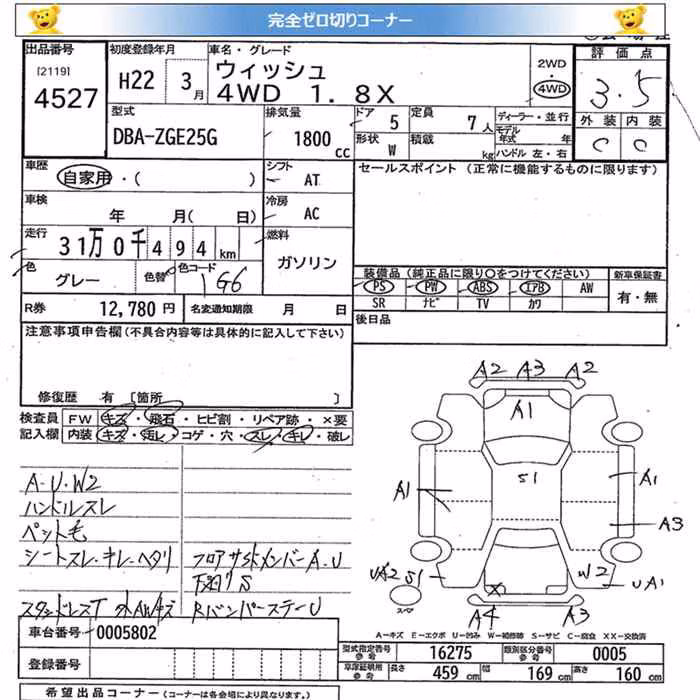 完全ゼロ切りコーナー
出品番号 初度登録年月 車名・グレード 評価点
[2119] 4527 H22 3月 ウィッシュ 2WD・4WD 3.5
4WD 1.8X
型式 排気量 ドア 5 定員 7人 ディーラー・並行 外装 内装
DBA-ZGE25G 1800cc 形状 W 積載 kg モデル年式 年 C C
ハンドル 左・右
車歴 自家用・( ) シフト AT セールスポイント (正常に機能するものに限ります)
車検 年 月( 日) 冷房 AC
走行 31万0千494km 燃料 ガソリン
色 グレー 色替 色コード 1G6 装備品 (純正品に限り○をつけてください) 新車保証書
PS PW ABS エアB AW 有・無
SR ナビ TV カワ
R券 12,780円 名変通知期限 月 日 後日品
注意事項申告欄(不具合内容等は具体的に記入して下さい)
修復歴 有 [箇所 ]
検査員 FW キズ・飛石・ヒビ割・リペア跡・×要
記入欄 内装 キズ・汚レ・コゲ・穴・スレ・キレ・破レ
A2 A3 A2
A1
S1
A1 A1
A3
UA2 S1 W2 UA1
スペア X
A4 A3
A-U・W2
ハンドルスレ
ペット毛
シートスレ・キレ・ヘタリ フロアサイドメンバーA・U
下廻りS
スタッドレスT 水AWキズ RバンパーステーU
A-キズ E-エクボ U-凹み W-補修跡 S-サビ C-腐食 XX-交換済
車台番号 0005802
登録番号
型式指定番号参考 16275 類別区分番号参考 0005
車庫証明用参考 長さ 459cm 幅 169cm 高さ 160cm
希望出品コーナー (コーナーは各会場により異なります。)